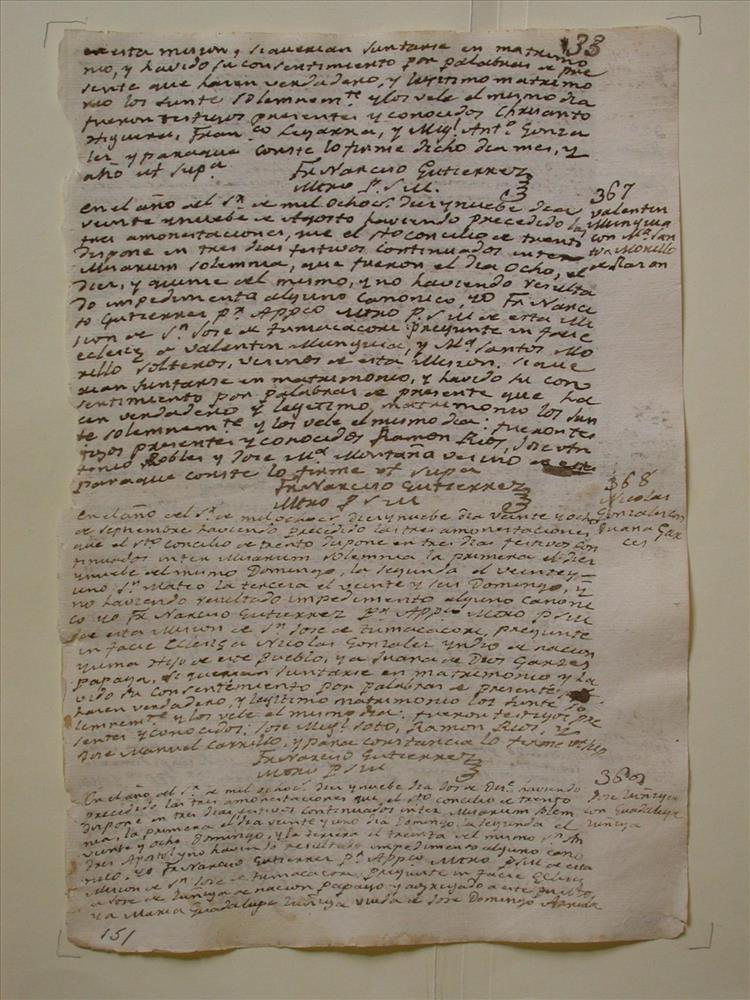 138
en esta mision, si querian juntarse en matrimo
nio, y havido su consentimiento por palabras de pre
sente que hacen verdadero, y legitimo matrimo
nio los junte solemnem.te y los vele el mismo dia
fueron testigos presentes y conocidos Chrisanto
Higuera, Fran.co Legarra, y Mig.l Ant.o Gonza
lez y paraque conste lo firme dicho dia mes, y
año ut sup.a
Fr Narciso Gutierrez
Mtro P.r S M.
367
Valentin
Munguia
con M.a San
tos Morillo
de Razon
En el año del S.r de mil ochoc.s diez y nuebe dia
veinte y nuebe de Agosto haviendo precedido las
tres amonestaciones, que el s.to concilio de trento
dispone en tres dias festivos continuados inter
Misarum solemnia, que fueron el dia ocho, el
diez, y quince del mismo, y no haviendo resulta
do impedimento alguno canonico, yo Fr Narci
so Gutierrez P.r App.co Mtro P.r S M de esta Mi
sion de S.n Jose de tumacacori pregunte in facie
eclesiæ a Valentin Munguia, y M.a Santos Mo
rillo solteros, vecinos de esta Mision, si que
rian juntarse en matrimonio, y havido su con
sentimiento por palabras de presente que ha
cen verdadero y legitimo, matrimonio los jun
te solemnem.te y los vele el mismo dia: fueron tes
tigos presentes y conocidos Ramon Rios, Jose An
tonio Robles y Jose M.a Montaña vecino de esta
paraque conste lo firme ut supa
Fr Narciso Gutierrez
Mtro P S M
368
Nicolas
Gonzales con
Juana Gar
ces
En el año del S.r de mil ochoc.s diez y nuebe dia veinte y ocho
de septiembre haviendo precedido las tres amonestaciones
que el s.to concilio de trento dispone en tres dias festivos con
tinuados inter Misarum solemnia la primera el diez
y nuebe del mismo Domingo, la segunda el veinte y
uno S.n Mateo la tercera el veinte y seis Domingo, y
no haviendo resultado impedimento alguno canoni
co yo Fr Narciso Gutierrez P.r App.co Mtro P S M
de esta Mision de S.n Jose de tumacacori, pregunte
in facie Eclesiæ a Nicolas Gonzalez yndio de nacion
yuma Hijo de este Pueblo, y a Juana de Dios Garzes
Papaga, si querian juntarse en matrimonio y ha
vido su consentimiento por palabras de presente, que
hacen verdadero, y legitimo matrimonio los junte so
lemnem.te y los vele el mismo dia: fueron testigos pre
sentes y conocidos: Jose Mig.l Soto, Ramon Rios, y
Jose Manuel Carrillo, y para constancia lo firme ut sup
Fr Narciso Gutierrez
Mtro P S M
369
Jose Zuñiga
con Guadalupe
Zuñiga
En el año del S.r de mil ochoc.s diez y nuebe dia dos de Dec.e haviendo
precedido las tres amonestaciones que el s.to concilio de trento
dispone en tres dias festivos continuados inter Misarum solem
nia, la primera el dia veinte y uno dia Domingo la segunda el
veinte y ocho Domingo, y la tercera el treinta del mismo S.n An
dres Apostol y no haviendo resultado impedimento alguno cano
nico, yo Fr Narciso Gutierrez P.r App.co Mtro P S M de esta
Mision de S.n Jose de tumacacori, pregunte in facie Eclesiæ
a Jose de Zuñiga de nacion papago y agregado a este pueblo
y a Maria Guadalupe Zuñiga viuda de Jose Domingo Arriola
151